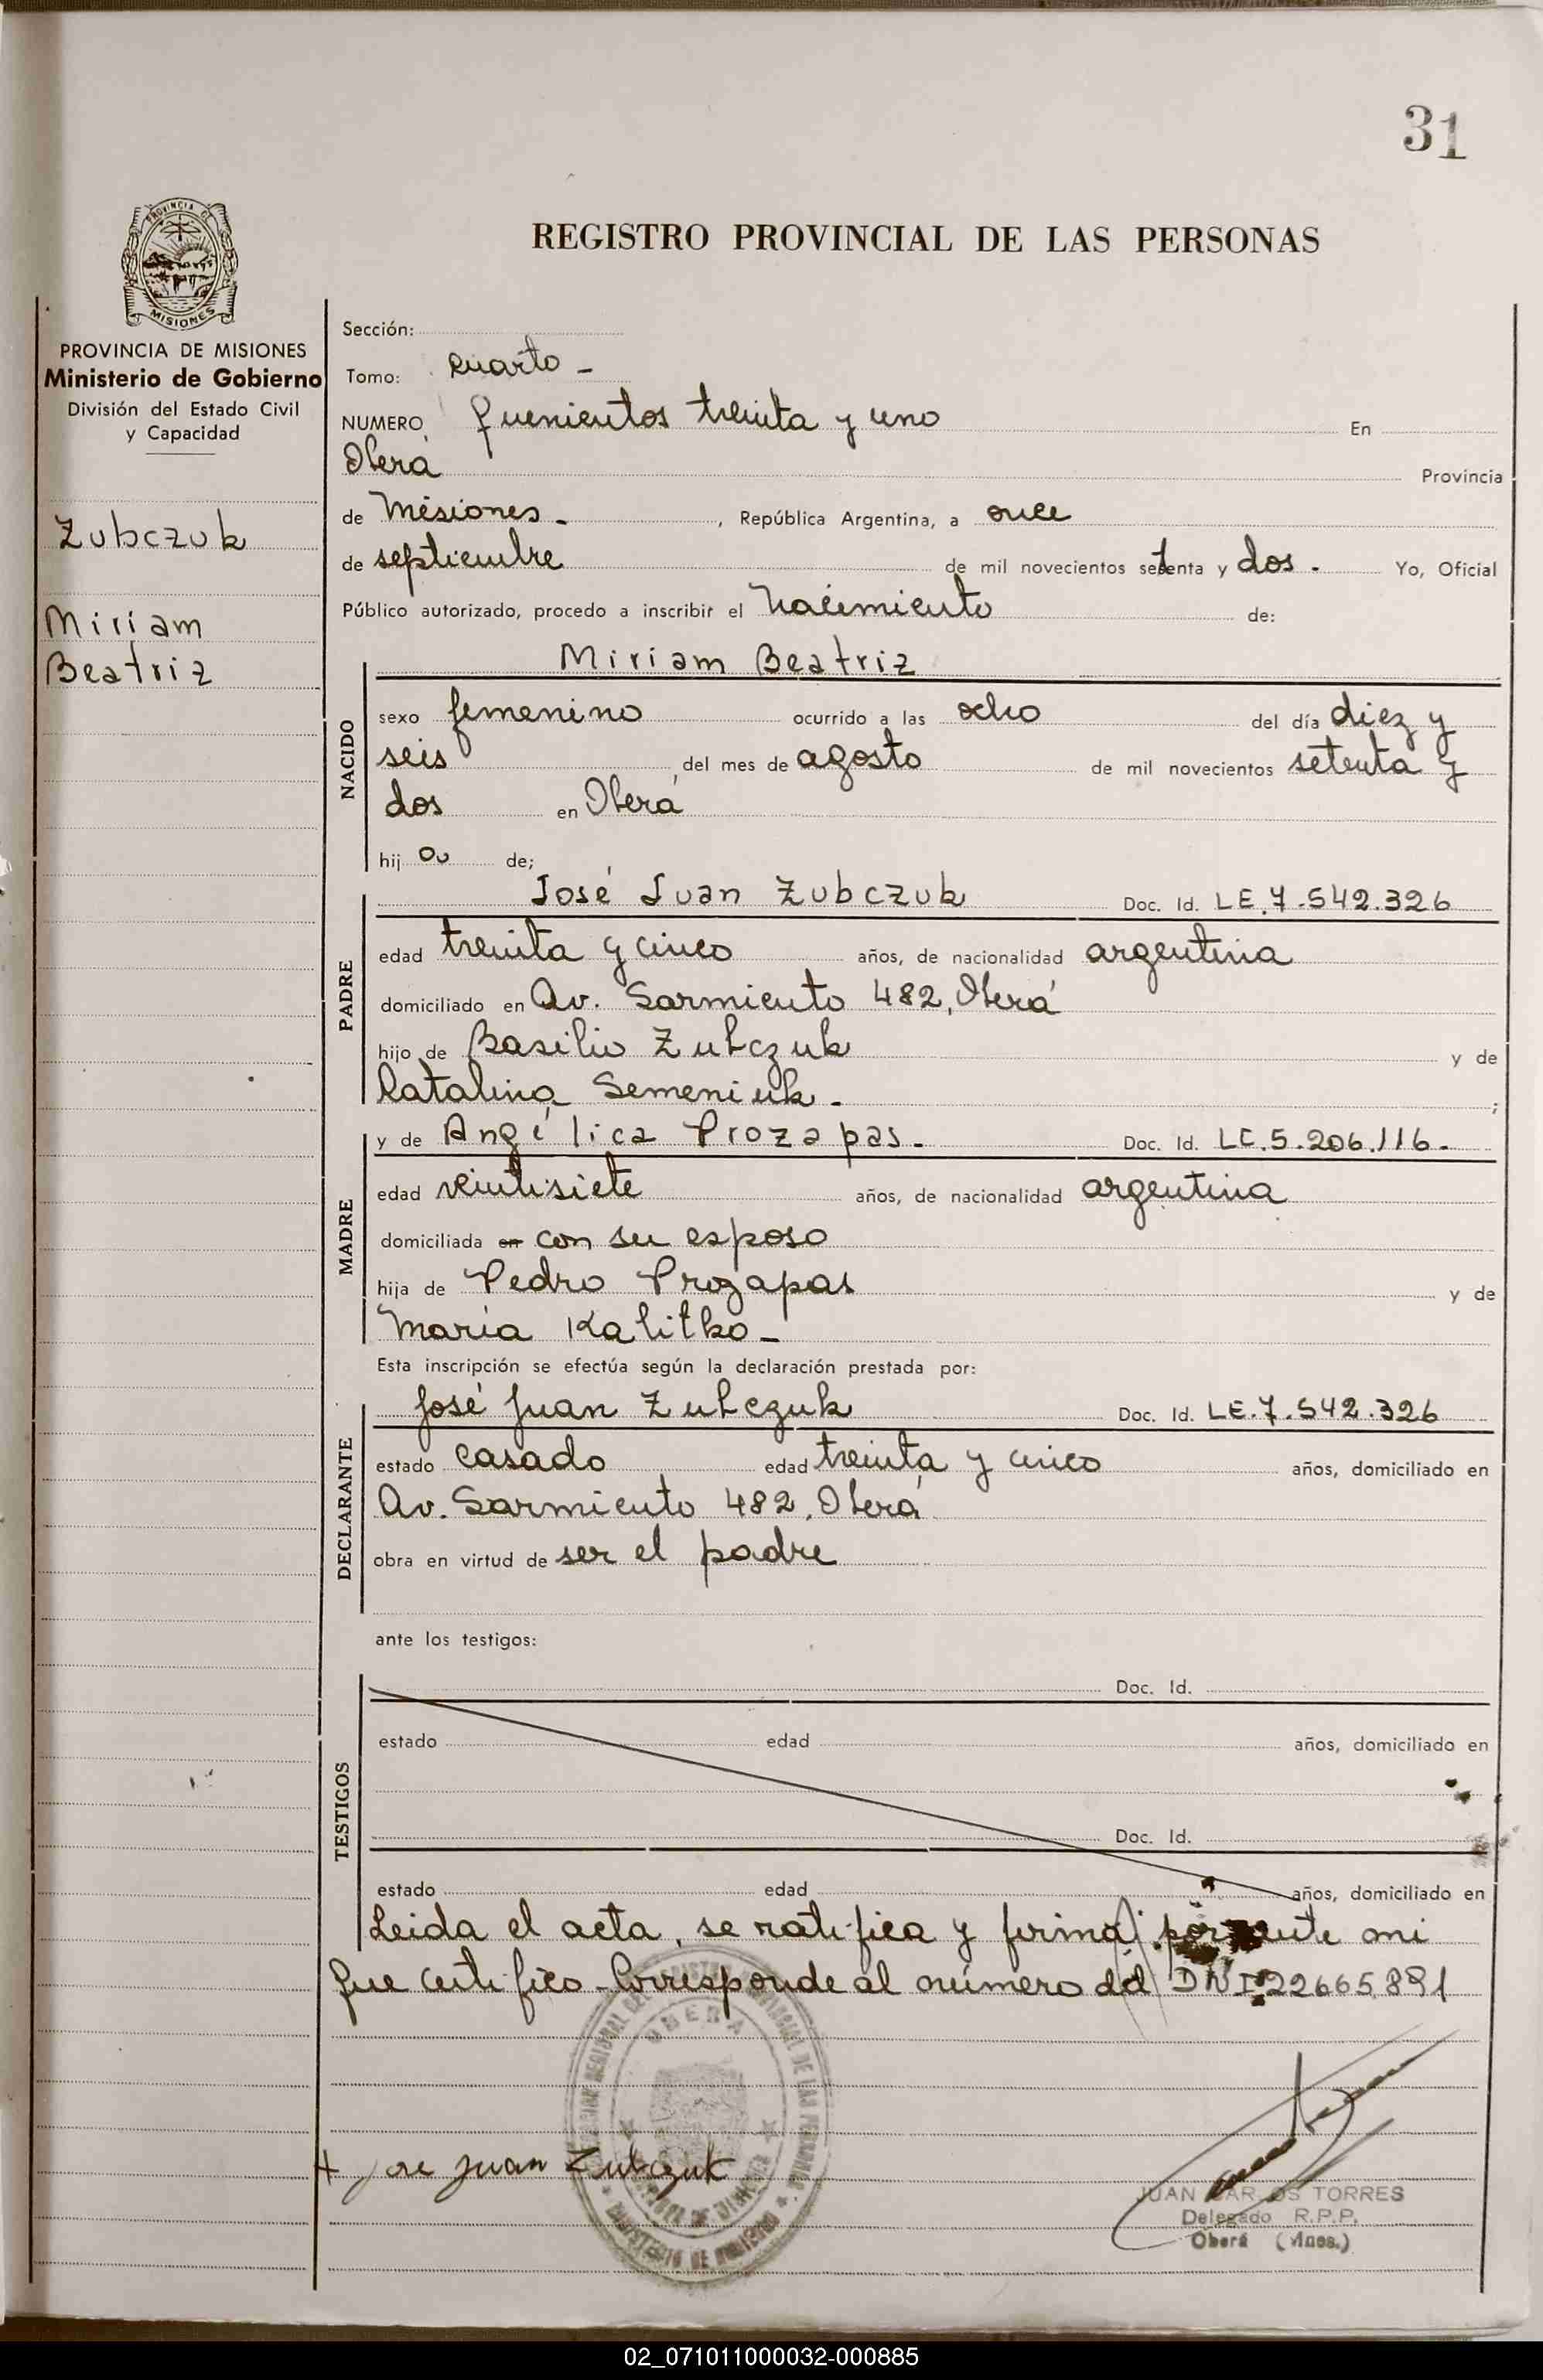 31
PROVINCIA DE
MISIONES
REGISTRO PROVINCIAL DE LAS PERSONAS
PROVINCIA DE MISIONES
Ministerio de Gobierno
División del Estado Civil
y Capacidad
Zubczuk
Miriam
Beatriz
Sección:
Tomo: cuarto -
NUMERO quinientos treinta y uno En
Oberá Provincia
de Misiones - , República Argentina, a once
de septiembre de mil novecientos setenta y dos - Yo, Oficial
Público autorizado, procedo a inscribir el nacimiento de:
NACIDO
Miriam Beatriz
sexo femenino ocurrido a las ocho del día diez y
seis del mes de agosto de mil novecientos setenta y
dos en Oberá
hij a de;
PADRE
José Juan Zubczuk Doc. Id. LE.7.542.326
edad treinta y cinco años, de nacionalidad argentina
domiciliado en Av. Sarmiento 482, Oberá
hijo de Basilio Zubczuk y de
Catalina Semeniuk - ;
MADRE
y de Angélica Prozapas - Doc. Id. LC.5.206.116-
edad veintisiete años, de nacionalidad argentina
domiciliada en con su esposo
hija de Pedro Prozapas y de
María Kalitko -
Esta inscripción se efectúa según la declaración prestada por:
DECLARANTE
José Juan Zubczuk Doc. Id. LE.7.542.326
estado casado edad treinta y cinco años, domiciliado en
Av. Sarmiento 482, Oberá
obra en virtud de ser el padre
ante los testigos:
TESTIGOS
Doc. Id.
estado edad años, domiciliado en
Doc. Id.
estado edad años, domiciliado en
Leida el acta, se ratifica y firma por ante mi
que certifico - Corresponde al número del DNI 22665891
OBERA
+ Jose Juan Zubczuk
JUAN CARLOS TORRES
Delegado R.P.P.
Oberá (Mnes.)
02_071011000032-000885